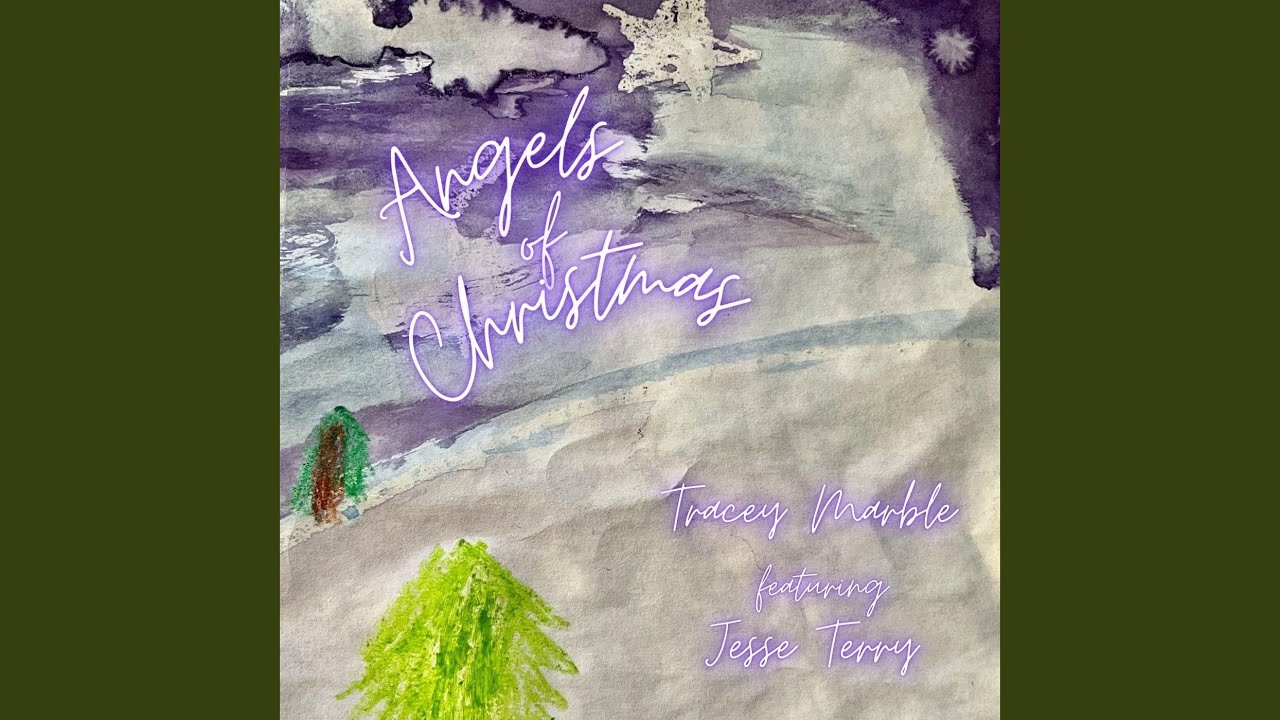 Angels
of
Christmas
Tracey Marble
featuring
Jesse Terry